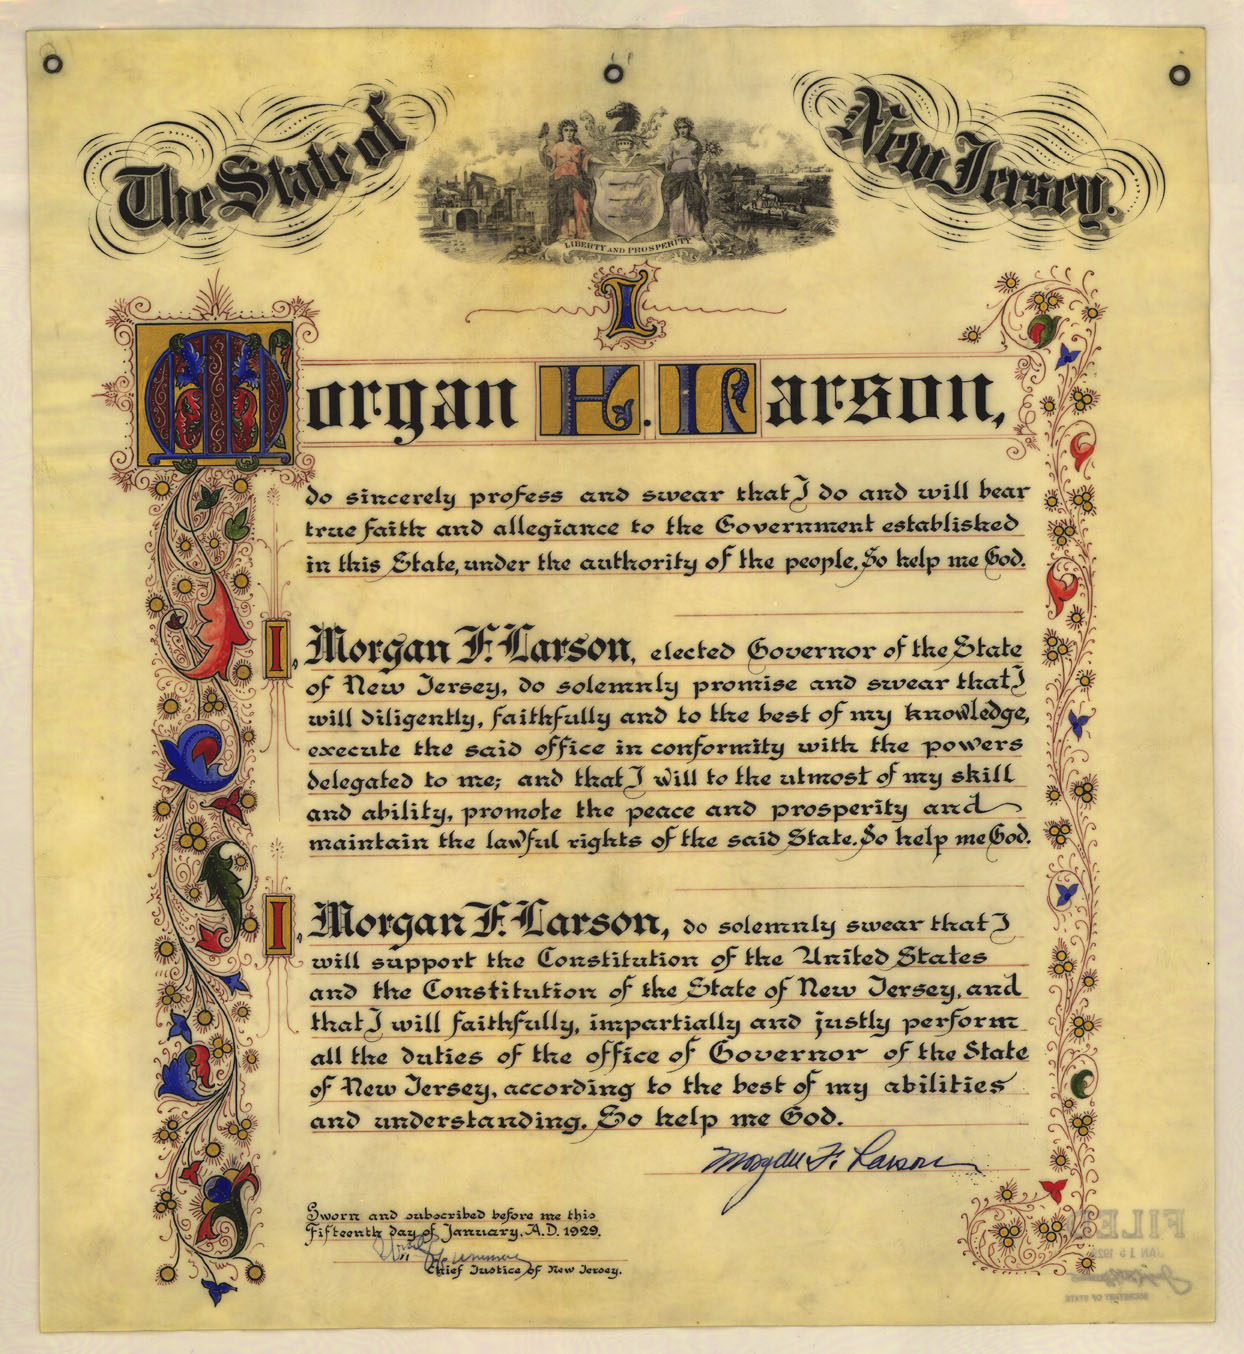 The State of New Jersey.
LIBERTY AND PROSPERITY
I
Morgan F. Larson,
do sincerely profess and swear that I do and will bear
true faith and allegiance to the Government established
in this State, under the authority of the people. So help me God.
I, Morgan F. Larson, elected Governor of the State
of New Jersey, do solemnly promise and swear that I
will diligently, faithfully and to the best of my knowledge,
execute the said office in conformity with the powers
delegated to me; and that I will to the utmost of my skill
and ability, promote the peace and prosperity and
maintain the lawful rights of the said State. So help me God.
I, Morgan F. Larson, do solemnly swear that I
will support the Constitution of the United States
and the Constitution of the State of New Jersey, and
that I will faithfully, impartially and justly perform
all the duties of the office of Governor of the State
of New Jersey, according to the best of my abilities
and understanding. So help me God.
Morgan F. Larson
Sworn and subscribed before me this
Fifteenth day of January, A.D. 1929.
Chief Justice of New Jersey.
FILED
JAN 15 1929
SECRETARY OF STATE